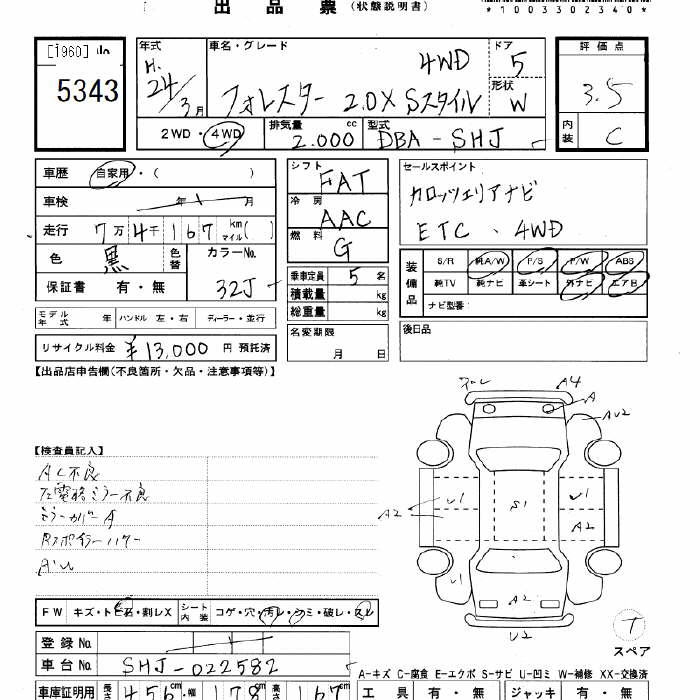 出品票 (状態説明書)
*1003302340*
[1960]
5343
年式 H. 24/3月
車名・グレード フォレスター 2.0X Sスタイル 4WD
ドア 5
形状 W
評価点 3.5
内装 C
2WD・4WD
排気量 2.000 cc
型式 DBA-SHJ
車歴 自家用・( )
車検 年 月
走行 7万4千167 km マイル( )
色 黒 色替 カラーNo. 32J
保証書 有・無
シフト FAT
冷房 AAC
燃料 G
乗車定員 5名
積載量 kg
総重量 kg
セールスポイント
カロッツェリアナビ
ETC、4WD
装備品 S/R 純A/W P/S P/W ABS
純TV 純ナビ 革シート 外ナビ エアB
ナビ型番:
モデル年式 年 ハンドル 左・右 ディーラー・並行
名変期限 月 日
後日品
リサイクル料金 ¥13,000 円 預託済
【出品店申告欄(不良箇所・欠品・注意事項等)】
A4
A
AU2
【検査員記入】
AC不良
左電格ミラー不良
ミラーカバーA
U1 S1 U1
A2 A2
U1
A2
U2
FW キズ・トビ石・割レX シート内装 コゲ・穴・汚レ・シミ・破レ・スレ
T
スペア
登録No.
車台No. SHJ-022582
A=キズ C=腐食 E=エクボ S=サビ U=凹ミ W=補修 XX=交換済
車庫証明用 長さ 456cm 幅 178cm 高さ 167cm
工具 有・無 ジャッキ 有・無